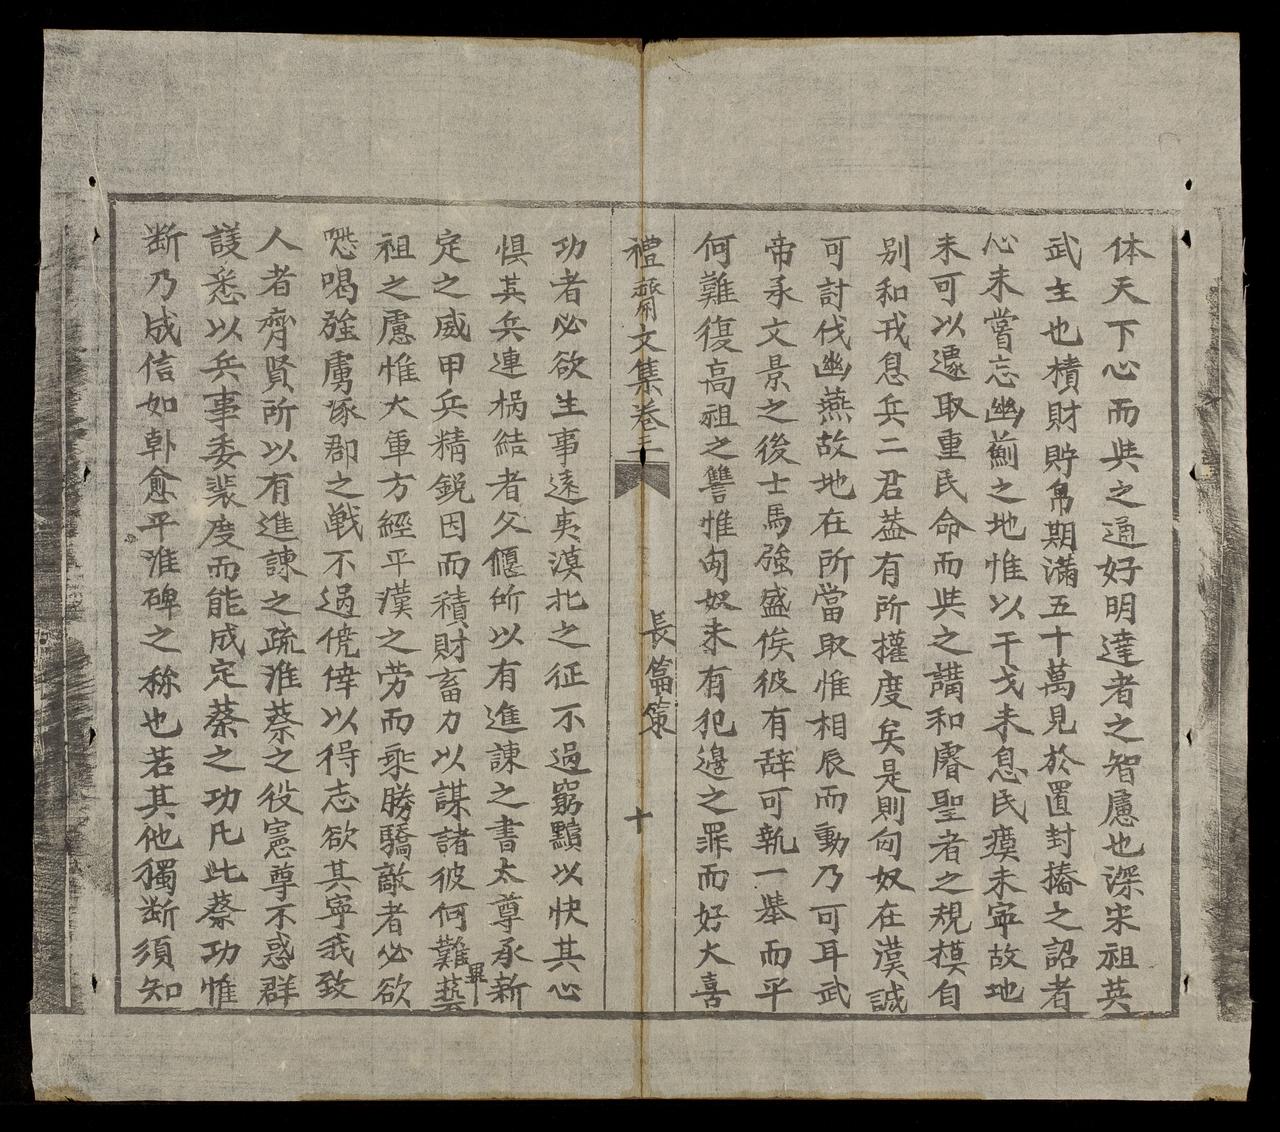 体天下心而与之通好明達者之智慮也深宋祖英
武主也積財貯帛期滿五十萬見於置封樁之詔者
心未嘗忘幽薊之地惟以干戈未息民瘼未寧故地
未可以遽取重民命而与之講和睿聖者之規模自
别和戎息兵二君盖有所權度矣是則匈奴在漢誠
可討伐幽燕故地在所當取惟相辰而動乃可耳武
帝承文景之後士馬強盛俟彼有辞可執一举而平
何難復高祖之讐惟匈奴未有犯邊之罪而好大喜
禮齋文集卷二 長篇策 十
功者必欲生事遠夷漠北之征不過窮黷以快其心
惧其兵連祸結者父偃所以有進諫之書太尊承新
定之威甲兵精銳因而積財畜力以謀諸彼何難畢藝
祖之慮惟大軍方經平漢之劳而乘勝驕敵者必欲
恐喝强虜涿郡之戦不過僥倖以得志欲其寧我致
人者齊賢所以有進諫之疏淮蔡之役憲尊不惑群
議悉以兵事委裴度而能成定蔡之功凡此蔡功惟
断乃成信如韩愈平淮碑之称也若其他獨断須知